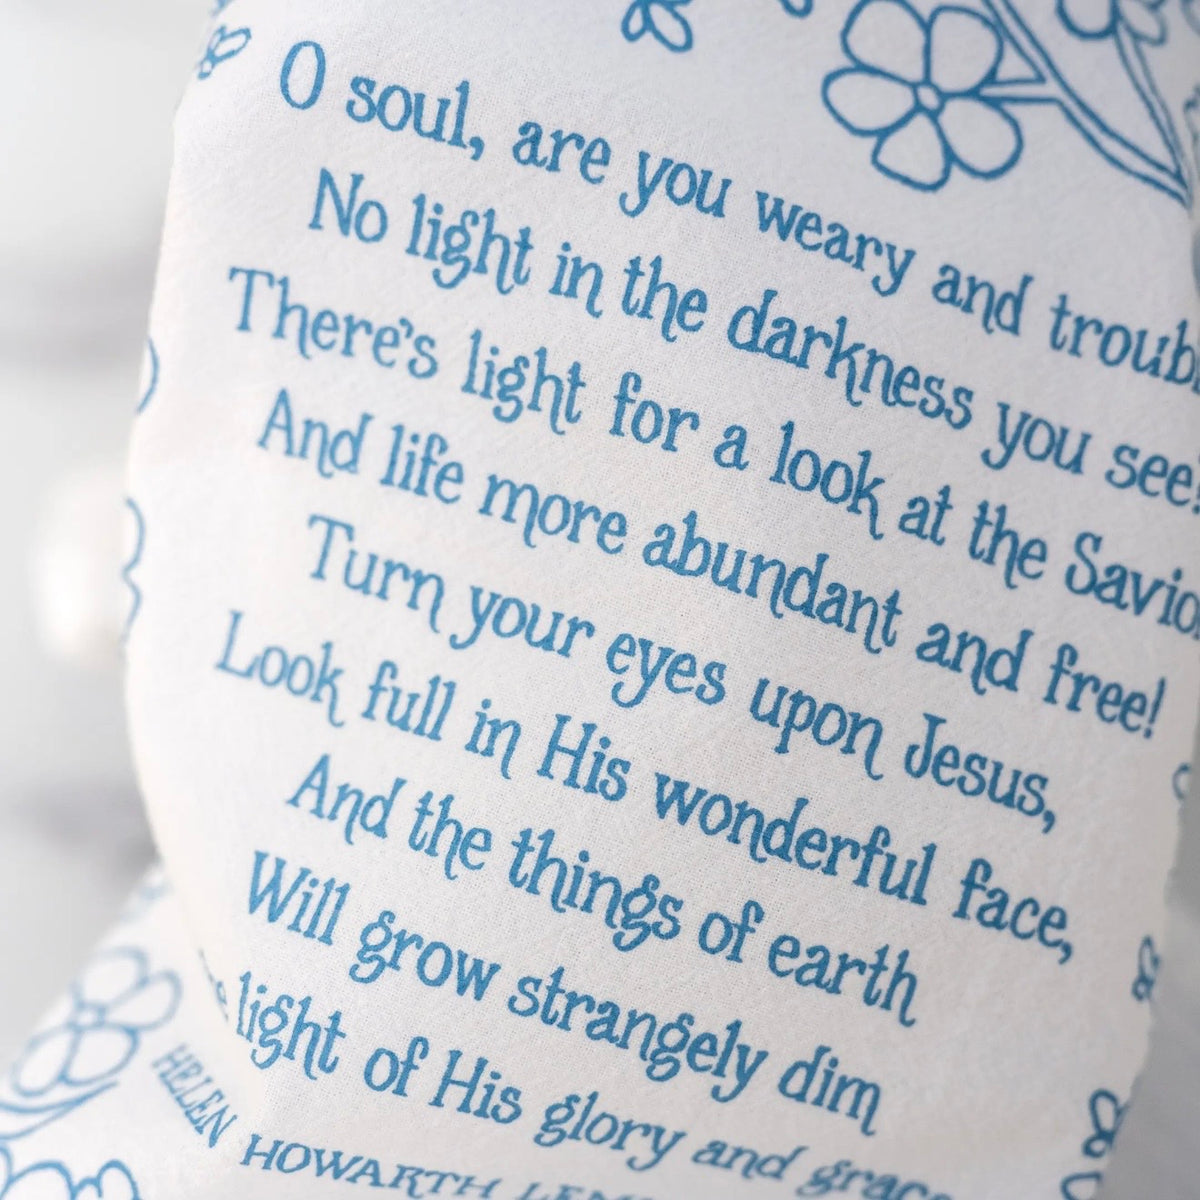 O soul, are you weary and troub
No light in the darkness you see?
There's light for a look at the Savio
And life more abundant and free!
Turn your eyes upon Jesus,
Look full in His wonderful face,
And the things of earth
Will grow strangely dim
light of His glory and grace
HELEN HOWARTH LEM